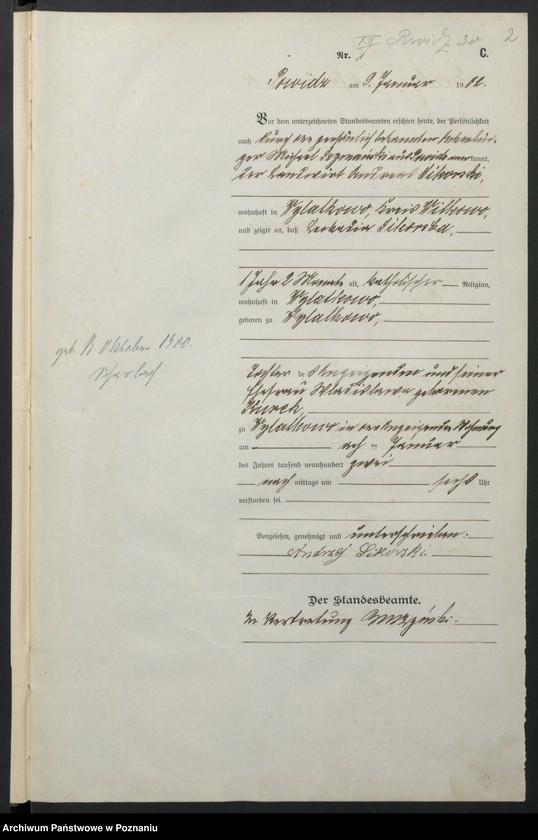 Powidz 30 2
Nr. 1 C.
Powidz am 9. Januar 1902.
Vor dem unterzeichneten Standesbeamten erschien heute, der Persönlichkeit
nach durch den persönlich bekannten
ger Michael aus Powidz anerkannt,
der Landwirt Andreas Sikorski,
wohnhaft in Wylatkowo, Kreis Witkowo,
und zeigte an, daß Leokadia Sikorska,
1 Jahr 2 Monate alt, katholischer Religion,
wohnhaft in Wylatkowo,
geboren zu Wylatkowo,
geb. 13. Oktober 1900.
Scharlach
Tochter des Anzeigenden und seiner
Ehefrau Wladislawa geborenen
zu Wylatkowo in der Anzeigenden Wohnung
am acht ten Januar
des Jahres tausend neunhundert zwei
nach mittags um sechs Uhr
verstorben sei.
Vorgelesen, genehmigt und unterschrieben:
Andrzej Sikorski.
Der Standesbeamte.
In Vertretung
Archiwum Państwowe w Poznaniu